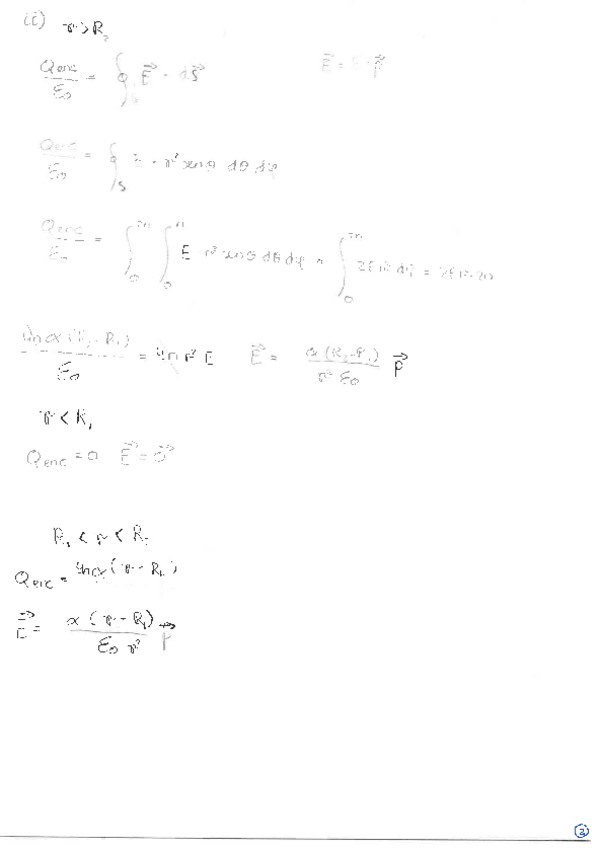 ii) r > R₂
Qenc/ε₀ = ∮ E⃗ · dS⃗
Qenc/ε₀ = ∮_S E · r² senθ dθ dφ
Qenc/ε₀ = ∫₀^2π ∫₀^π E r² senθ dθ dφ = ∫₀^2π 2E r² dφ = 2E r² 2π
4πα(R₂-R₁)/ε₀ = 4π r² E E⃗ = α(R₂-R₁)/(r² ε₀) r⃗
r < R₁
Qenc = 0 E⃗ = 0⃗
R₁ < r < R₂
Qenc = 4πα(r - R₁)
E⃗ = α(r - R₁)/(ε₀ r²) r⃗
2